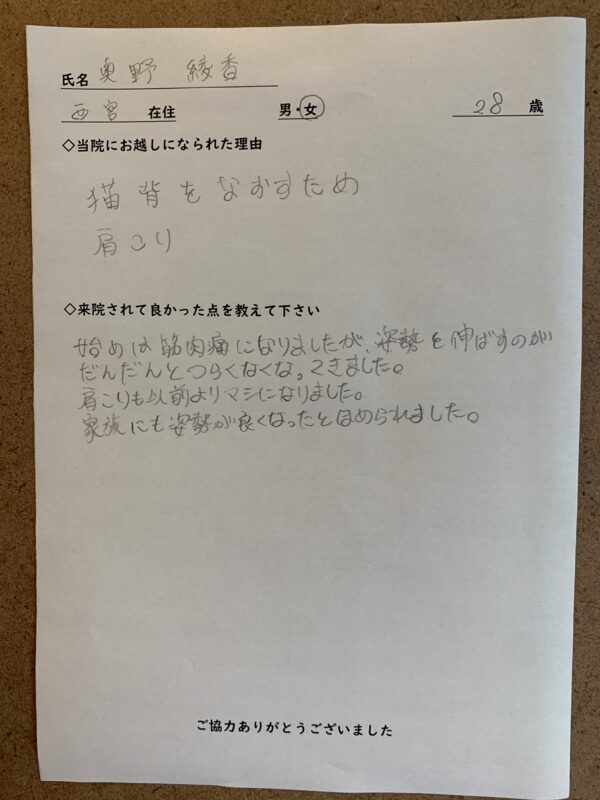 氏名 奥野 綾香
西宮 在住 男・女 28 歳
◇当院にお越しになられた理由
猫背をなおすため
肩こり
◇来院されて良かった点を教えて下さい
始めは筋肉痛になりましたが、姿勢を伸ばすのが
だんだんとつらくなくなってきました。
肩こりも以前よりマシになりました。
家族にも姿勢が良くなったとほめられました。
ご協力ありがとうございました